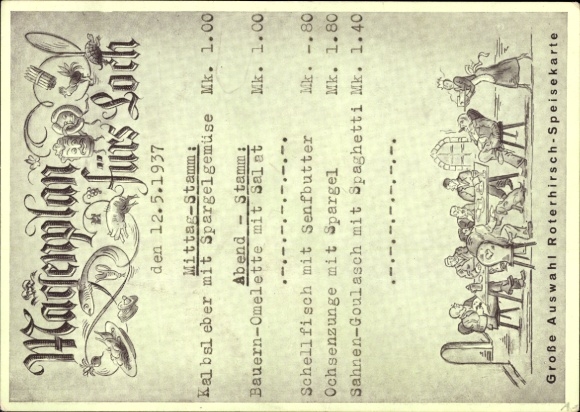 Magenplan
fürs Loch
den 12.5.1937
Mittag-Stamm:
Kalbsleber mit Spargelgemüse Mk. 1.00
Abend - Stamm:
Bauern-Omelette mit Salat Mk. 1.00
.-.-.-.-.-.-.-.
Schellfisch mit Senfbutter Mk. -.80
Ochsenzunge mit Spargel Mk. 1.80
Sahnen-Goulasch mit Spaghetti Mk. 1.40
.-.-.-.-.-.
Große Auswahl Roterhirsch-Speisekarte